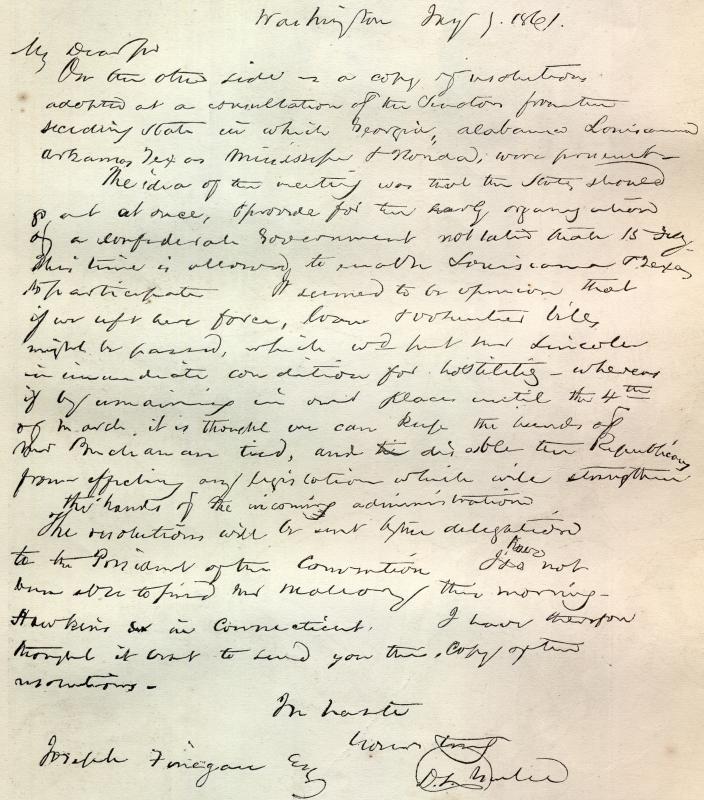 Washington Jany 5. 1861.
My Dear Sir
On the other side is a copy of resolutions
adopted at a consultation of the Senators from the
seceding States in which Georgia, Alabama Louisiana
Arkansas Texas Mississippi & Florida, were present—
The idea of the meeting was that the States should
go out at once, & provide for the early organization
of a Confederate Government not later than 15 Feby.
This time is allowed to enable Louisiana & Texas
to participate It seemed to be opinion that
if we left here force, loan & volunteer bills
might be passed, which wd put Mr Lincoln
in immediate condition for hostilities – whereas
if by remaining in our places until the 4th
of March it is thought we can keep the hands of
Mr Buchanan tied, and disable the Republicans
from effecting any legislation which will strengthen
the hands of the incoming administration
The resolutions will be sent by the delegation
to the President of the Convention I have not
been able to find Mr Mallory this morning –
Hawkins is in Connecticut. I have therefore
thought it best to send you this copy of the
resolutions –
In haste
Yours truly
D. L. Yulee
Joseph Finegan Esq